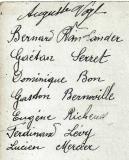 Auguste Vogt
Bernard Ram Lander
Gaëtan Serret
Dominique Bon
Gaston Bernoville
Eugène Richeux
Ferdinand Lévy
Lucien Mercier